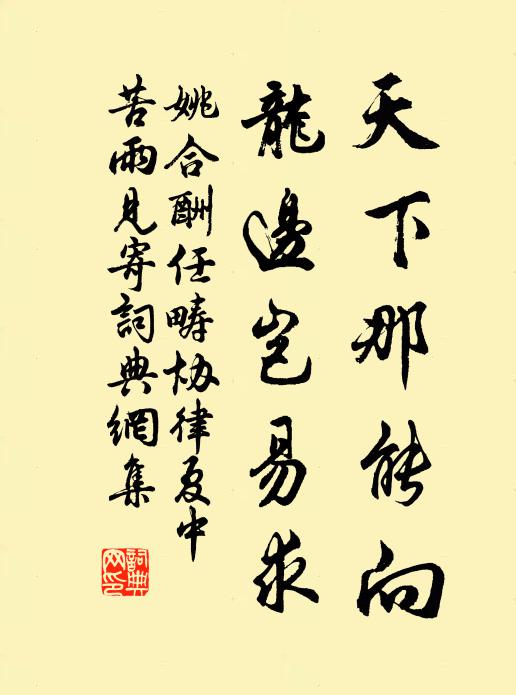 天下那能向
龍邊豈易求
姚合酬任疇協律夏中
苦雨見寄詞典網集
詞典網印